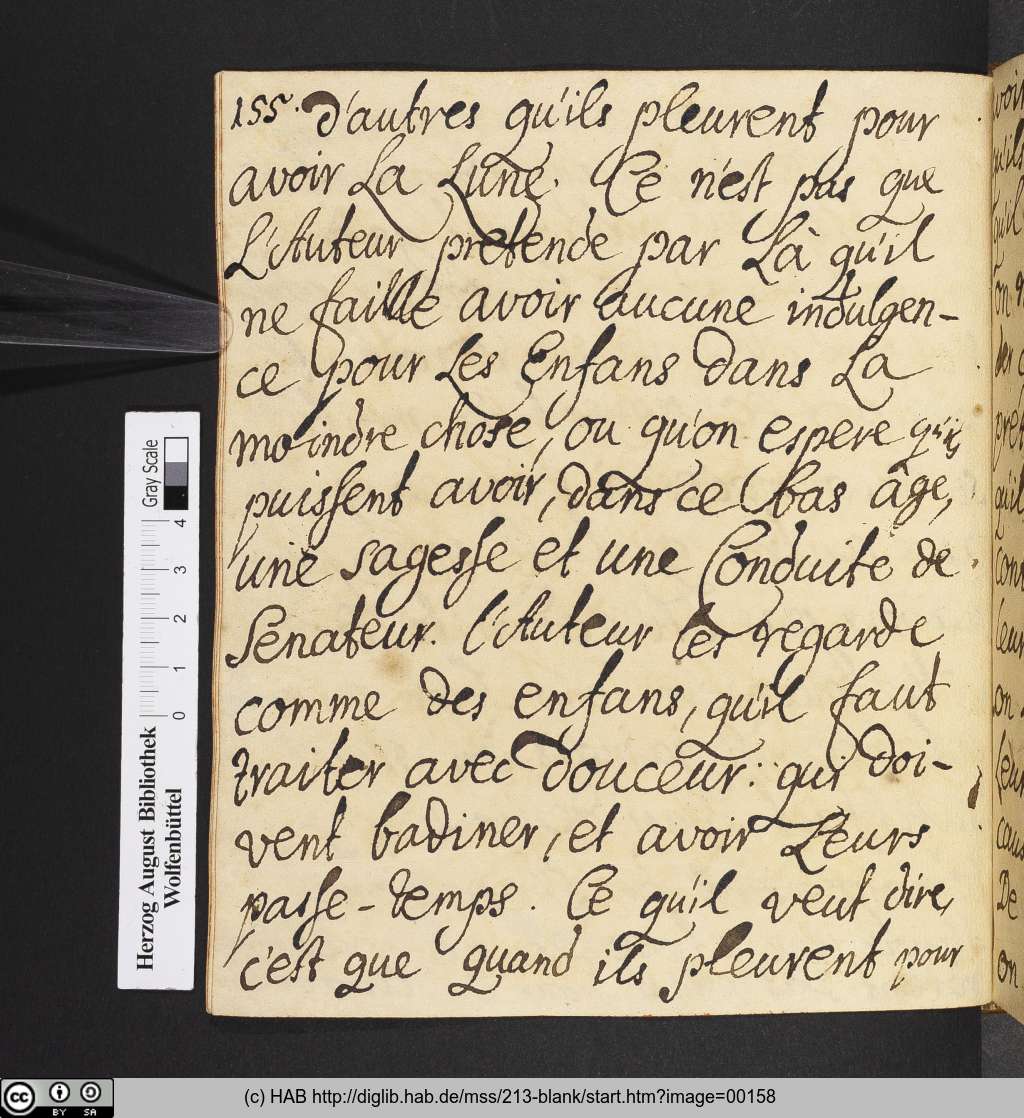 155. d'autres qu'ils pleurent pour
avoir La Lune. Ce n'est pas que
L'Auteur pretende par Là qu'il
ne faille avoir aucune indulgen-
ce pour Les Enfans dans La
moindre chose, ou qu'on espere qu'ils
puissent avoir, dans ce bas âge,
une sagesse et une Conduite de
Senateur. l'Auteur les regarde
comme des enfans, qu'il faut
traiter avec douceur: qui doi-
vent badiner, et avoir Leurs
passe-temps. Ce qu'il veut dire,
c'est que quand ils pleurent pour
Herzog August Bibliothek
Wolfenbüttel
0 1 2 3 4
Gray Scale
CC BY SA
(c) HAB http://diglib.hab.de/mss/213-blank/start.htm?image=00158